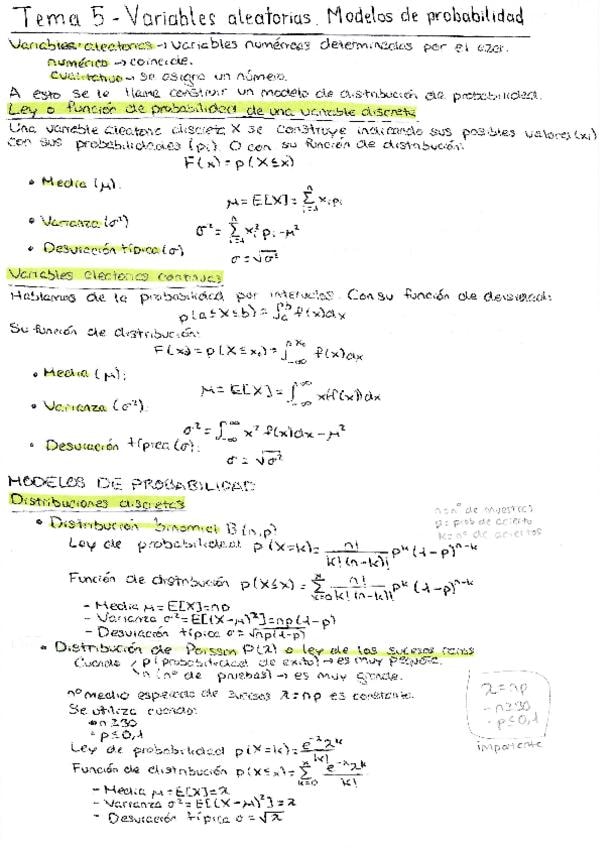 Tema 5 - Variables aleatorias. Modelos de probabilidad
Variables aleatorias → variables numéricas determinadas por el azar.
numérico → coincide.
cualitativo → se asigna un número.
A esto se le llama construir un modelo de distribución de probabilidad.
Ley o función de probabilidad de una variable discreta
Una variable aleatoria discreta X se construye indicando sus posibles valores (xi)
con sus probabilidades (pi). O con su función de distribución:
F(x) = p(X≤x)
• Media (μ):
μ = E[X] = ∑ⁿᵢ₌₁ xᵢpᵢ
• Varianza (σ²)
σ² = ∑ⁿᵢ₌₁ xᵢ² pᵢ - μ²
• Desviación típica (σ)
σ = √σ²
Variables aleatorias continuas
Hablamos de la probabilidad por intervalos. Con su función de densidad:
p(a≤X≤b) = ∫ₐᵇ f(x)dx
Su función de distribución:
F(x₀) = p(X≤x₀) = ∫₋∞ˣ⁰ f(x)dx
• Media (μ):
μ = E[X] = ∫₋∞^∞ x(f(x))dx
• Varianza (σ²):
σ² = ∫₋∞^∞ x² f(x)dx - μ²
• Desviación típica (σ):
σ = √σ²
MODELOS DE PROBABILIDAD
Distribuciones discretas
• Distribución binomial B(n,p)
n = nº de muestras
p = prob de acierto
k = nº de aciertos
Ley de probabilidad p(X=k) = n!/(k!(n-k)!) pᵏ (1-p)ⁿ⁻ᵏ
Función de distribución p(X≤x) = ∑ˣₖ₌₀ n!/(k!(n-k)!) pᵏ (1-p)ⁿ⁻ᵏ
- Media μ = E[X] = np
- Varianza σ² = E[(X-μ)²] = np(1-p)
- Desviación típica σ = √np(1-p)
• Distribución de Poisson P(λ) o ley de los sucesos raros
Cuando p (probabilidad de éxito) → es muy pequeña.
n (nº de pruebas) → es muy grande.
nº medio esperado de sucesos λ = np es constante.
Se utiliza cuando:
• n≥30
• p≤0,1
λ = np
- n≥30
- p≤0,1
importante
Ley de probabilidad p(X=k) = e^-λ λᵏ/k!
Función de distribución p(X≤x) = ∑ˣₖ₌₀ e^-λ λᵏ/k!
- Media μ = E[X] = λ
- Varianza σ² = E[(X-μ)²] = λ
- Desviación típica σ = √λ